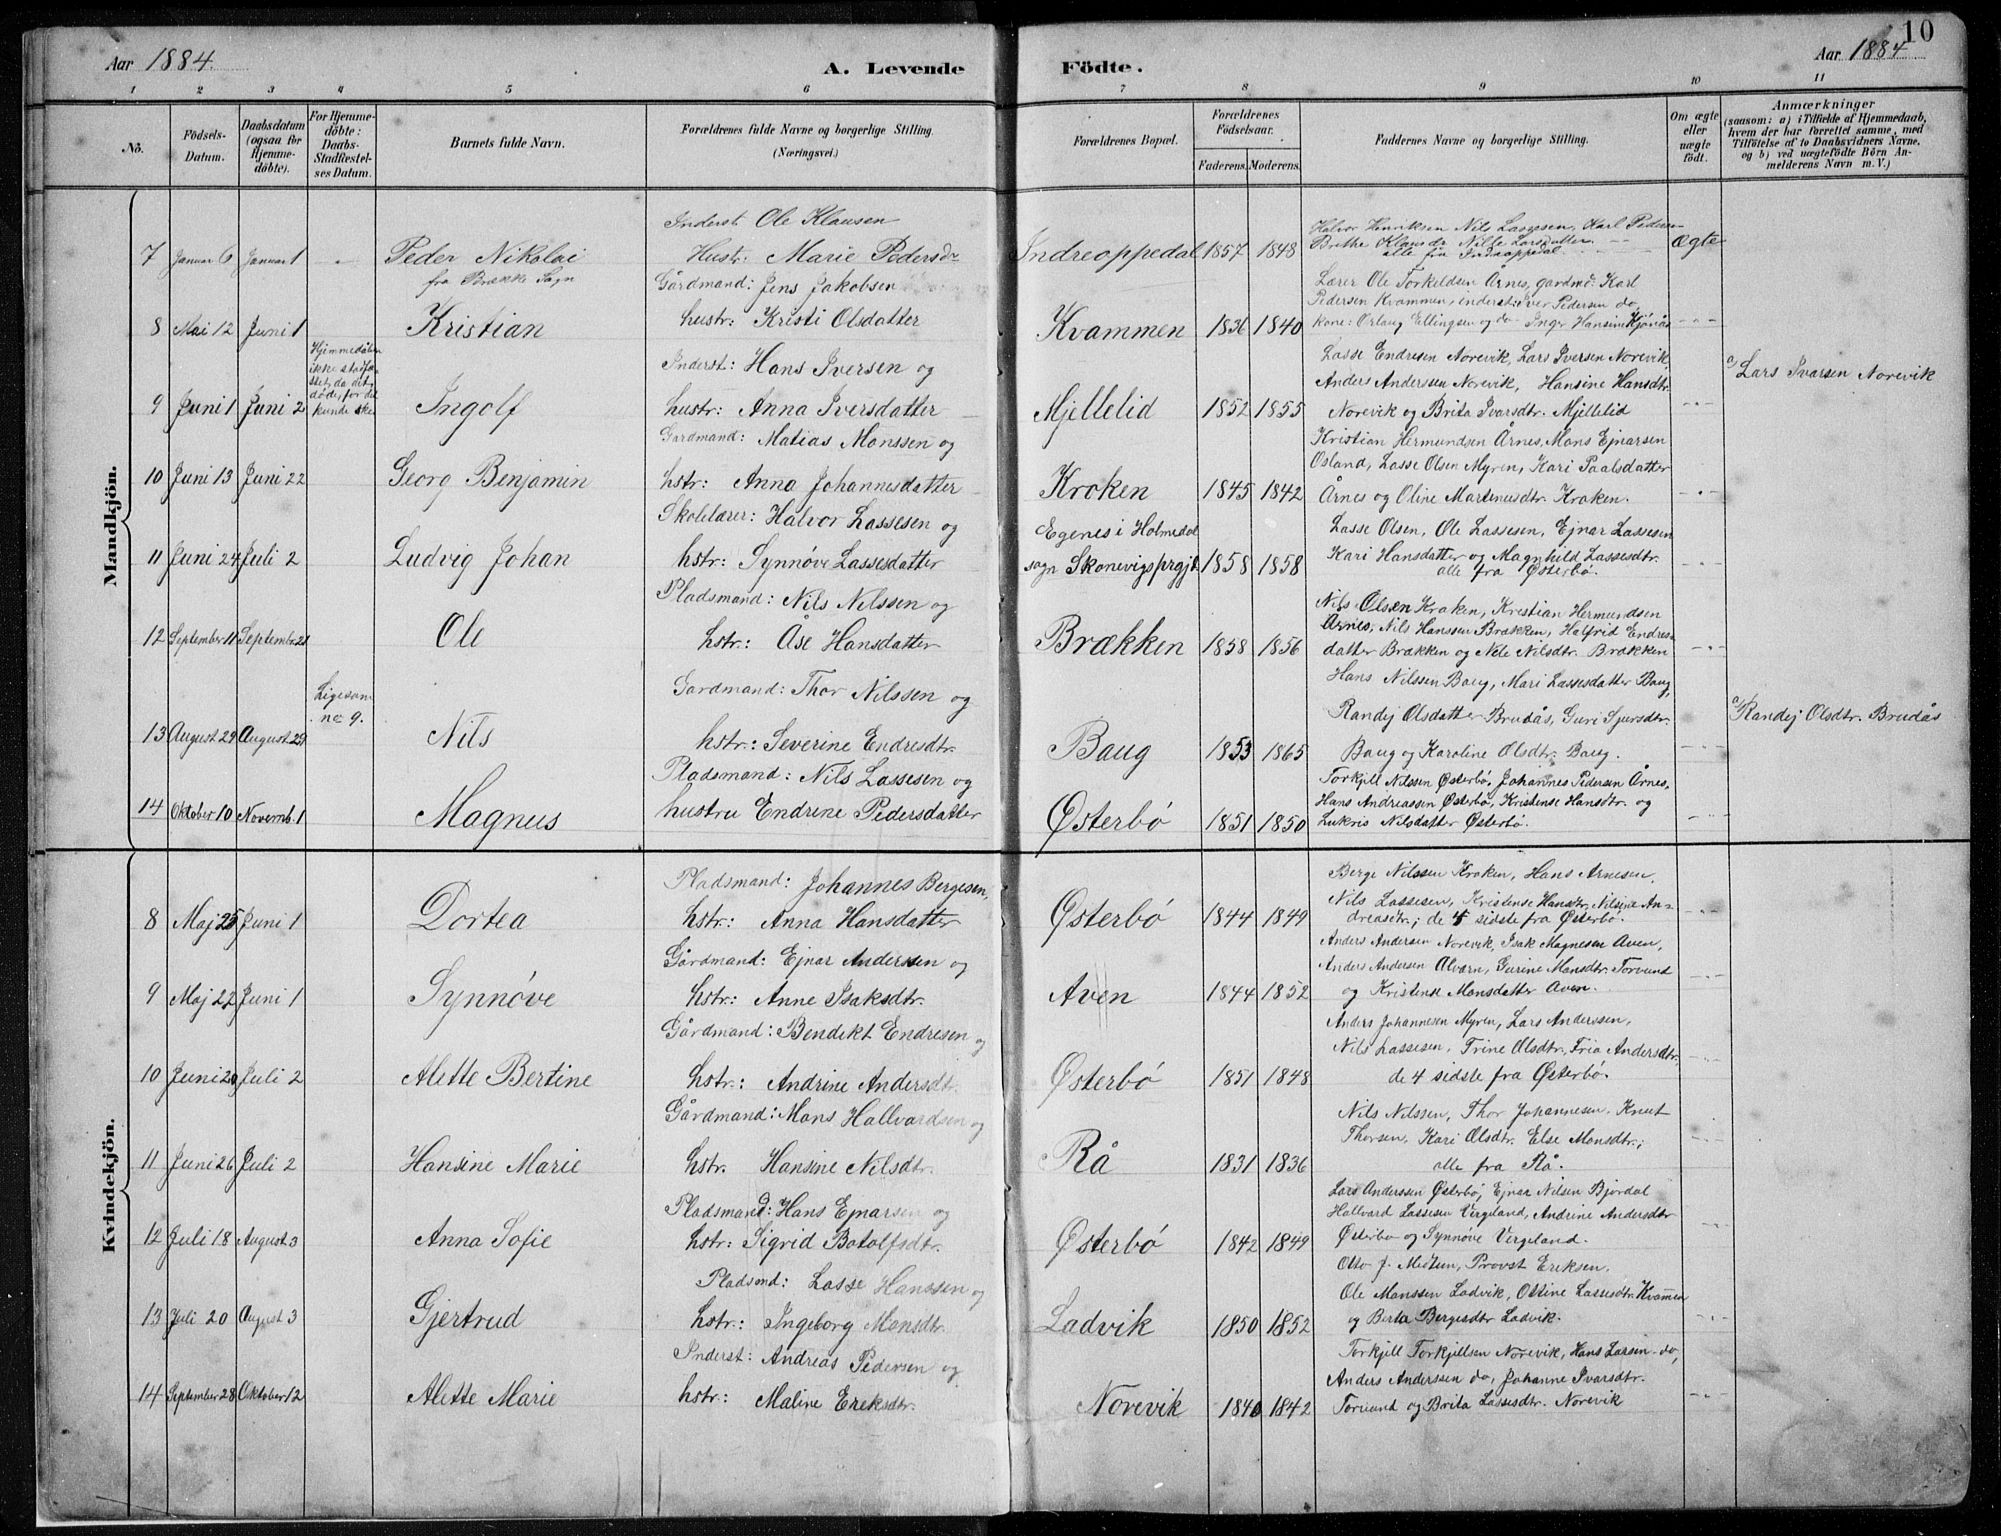 10
Aar 1884.
A. Levende
Födte.
Aar 1884
1 2 3 4 5 6 7 8 9 10 11
No.
Födsels-
Datum.
Daabsdatum
(ogsaa for
Hjemme-
döbte).
For Hjemme-
döbte:
Daabs-
Stadfæstel-
ses Datum.
Barnets fulde Navn.
Forældrenes fulde Navne og borgerlige Stilling.
(Næringsvei.)
Forældrenes Bopæl.
Forældrenes
Födselsaar.
Faderens. Moderens.
Faddernes Navne og borgerlige Stilling.
Om ægte
eller
uægte
født.
Anmærkninger
(saasom: a) i Tilfælde af Hjemmedaab,
hvem der har forrettet samme, med
Tilföielse af to Daabsvidners Navne,
og b) ved uægtefödte Börn An-
melderens Navn m. V.)
Mandkjön.
Inderst Ole Klausen
7 Januar 6 Januar 1 Peder Nikolai Hustr: Marie Pedersdr Indreoppedal 1857 1848 Ægte
fra Brække Sogn
Halvor Henriksen Nils Lassesen, Karl Pedersen
Brithe Klausdr Nille Larsdatter
alle fra Indreoppedal
Gårdmand: Jens Jakobsen
8 Mai 12 Juni 1 Kristian hustr: Kristi Olsdatter Kvammen 1836 1840
Lærer Ole Torkeldsen Årnes, gardmd: Karl
Pedersen Kvammen, inderst: Iver Pedersen do,
kone: Orlaug Ellingsen og do Inger Hansine Kjönås
Hjemmedåben
ikke stadfæ-
stet, da det
døde, før det
kunde ske
Inderst: Hans Iversen og
9 Juni 1 Juni 2 Ingolf hustr: Anna Iversdatter Mjellelid 1852 1855
Lasse Endresen Norevik, Lars Iversen Norevik,
Anders Anderssen Norevik, Hansine Hansdtr.
Norevik og Brita Ivarsdtr. Mjellelid
a/ Lars Ivarsen Norevik
Gardmand: Matias Monssen og
10 Juni 13 Juni 22 Georg Benjamin hstr: Anna Johannesdatter Kroken 1845 1842
Kristian Hermundsen Årnes, Mons Ejnarsen
Osland, Lasse Olsen Myren, Kari Paalsdatter
Årnes og Oline Martinusdtr. Kroken.
Skolelærer: Halvor Lassesen og
11 Juni 24 Juli 2 Ludvig Johan hstr: Synnøve Lassesdatter
Egenes i Holmedal
sogn Skonevigsprgjd. 1858 1858
Lasse Olsen, Ole Lassesen, Ejnar Lassesen
Kari Hansdatter og Magnhild Lassesdtr.
alle fra Østerbø.
Pladsmand: Nils Nilssen og
12 September 11 September 21 Ole hstr: Åse Hansdatter Brækken 1858 1856
Nils Olsen Kroken, Kristian Hermundsen
Årnes, Nils Hanssen Brækken, Halfrid Endres-
datter Brækken og Nele Nilsdtr. Brækken
Ligesom
no 9.
Gardmand: Thor Nilssen og
13 August 29 August 29 Nils hstr.: Severine Endresdtr. Baug 1853 1865
Hans Nilssen Baug, Mari Lassesdatter Baug,
Randej Olsdatter Brudås, Guri Sjursdtr.
Baug og Karoline Olsdtr. Baug.
a/ Randej Olsdtr. Brudås
Pladsmand: Nils Lassesen og
14 Oktober 10 Novemb. 1 Magnus hustru Endrine Pedersdatter Østerbø 1851 1850
Torkjell Nilssen Østerbø, Johannes Pedersen Årnes,
Hans Andreassen Østerbø, Kristense Hansdtr. og
Lukris Nilsdatter Østerbø.
Kvindekjön.
Pladsmand: Johannes Bergesen,
8 Maj 25 Juni 1 Dortea hstr: Anna Hansdatter Østerbø 1844 1849
Berge Nilssen Kroken, Hans Arnesen,
Nils Lassesen, Kristense Hansdtr, Nilsine An-
dreasdtr.; de 4 sidste fra Østerbø.
Gårdmand: Ejnar Anderssen og
9 Maj 22 Juni 1 Synnøve hstr: Anne Isaksdtr. Aven 1844 1852
Anders Andersen Norevik, Isak Magnesen Aven,
Anders Andersen Alvørn, Gurine Monsdtr. Torvund
og Kristense Monsdatter Aven.
Gårdmand: Bendikt Endresen og
10 Juni 20 Juli 2 Alette Bertine hstr: Andrine Andersdt. Østerbø 1851 1848
Anders Johannesen Myren, Lars Anderssen,
Nils Lassesen, Trine Olsdtr, Fria Andersdtr,
de 4 sidste fra Østerbø.
Gårdmand: Mons Hallvardsen og
11 Juni 26 Juli 2 Hansine Marie hstr. Hansine Nilsdtr. Rå 1831 1836
Nils Nilssen, Thor Johannesen. Knut
Thorsen, Kari Olsdtr. Else Monsdtr.;
alle fra Rå.
Pladsmand: Hans Ejnarsen og
12 Juli 18 August 3 Anna Sofie hstr: Sigrid Botolfsdtr. Østerbø 1842 1849
Lars Anderssen Østerbø, Ejnar Nilsen Bjordal
Hallvard Lassesen Vergeland, Andrine Andersdtr
Østerbø og Synnøve Vergeland.
Pladsmd: Lasse Hanssen og
13 Juli 20 August 3 Gjertrud hstr.: Ingeborg Monsdtr. Ladvik 1850 1852
Otto J. Mestun, Provst Eriksen,
Ole Monssen Ladvik, Ostine Lassesdtr. Kvammen
og Berta Bergesdtr Ladvik.
Inderst: Andreas Pedersen og
14 September 28 Oktober 12 Alette Marie hstr: Maline Ereksdtr. Norevik 1840 1842
Torkjell Torkjellsen Norevik, Hans Larsen do,
Anders Anderssen do, Johanne Ivarsdtr.
Torvund og Brita Lassesdtr. Norevik